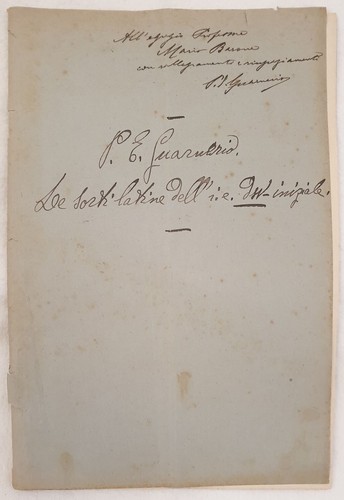 All'egregio Professore
Mario Barone
con rallegramenti e ringraziamenti
P. E. Guarnerio
P. E. Guarnerio.
Le sorti latine dell' i.e. dw- iniziale.